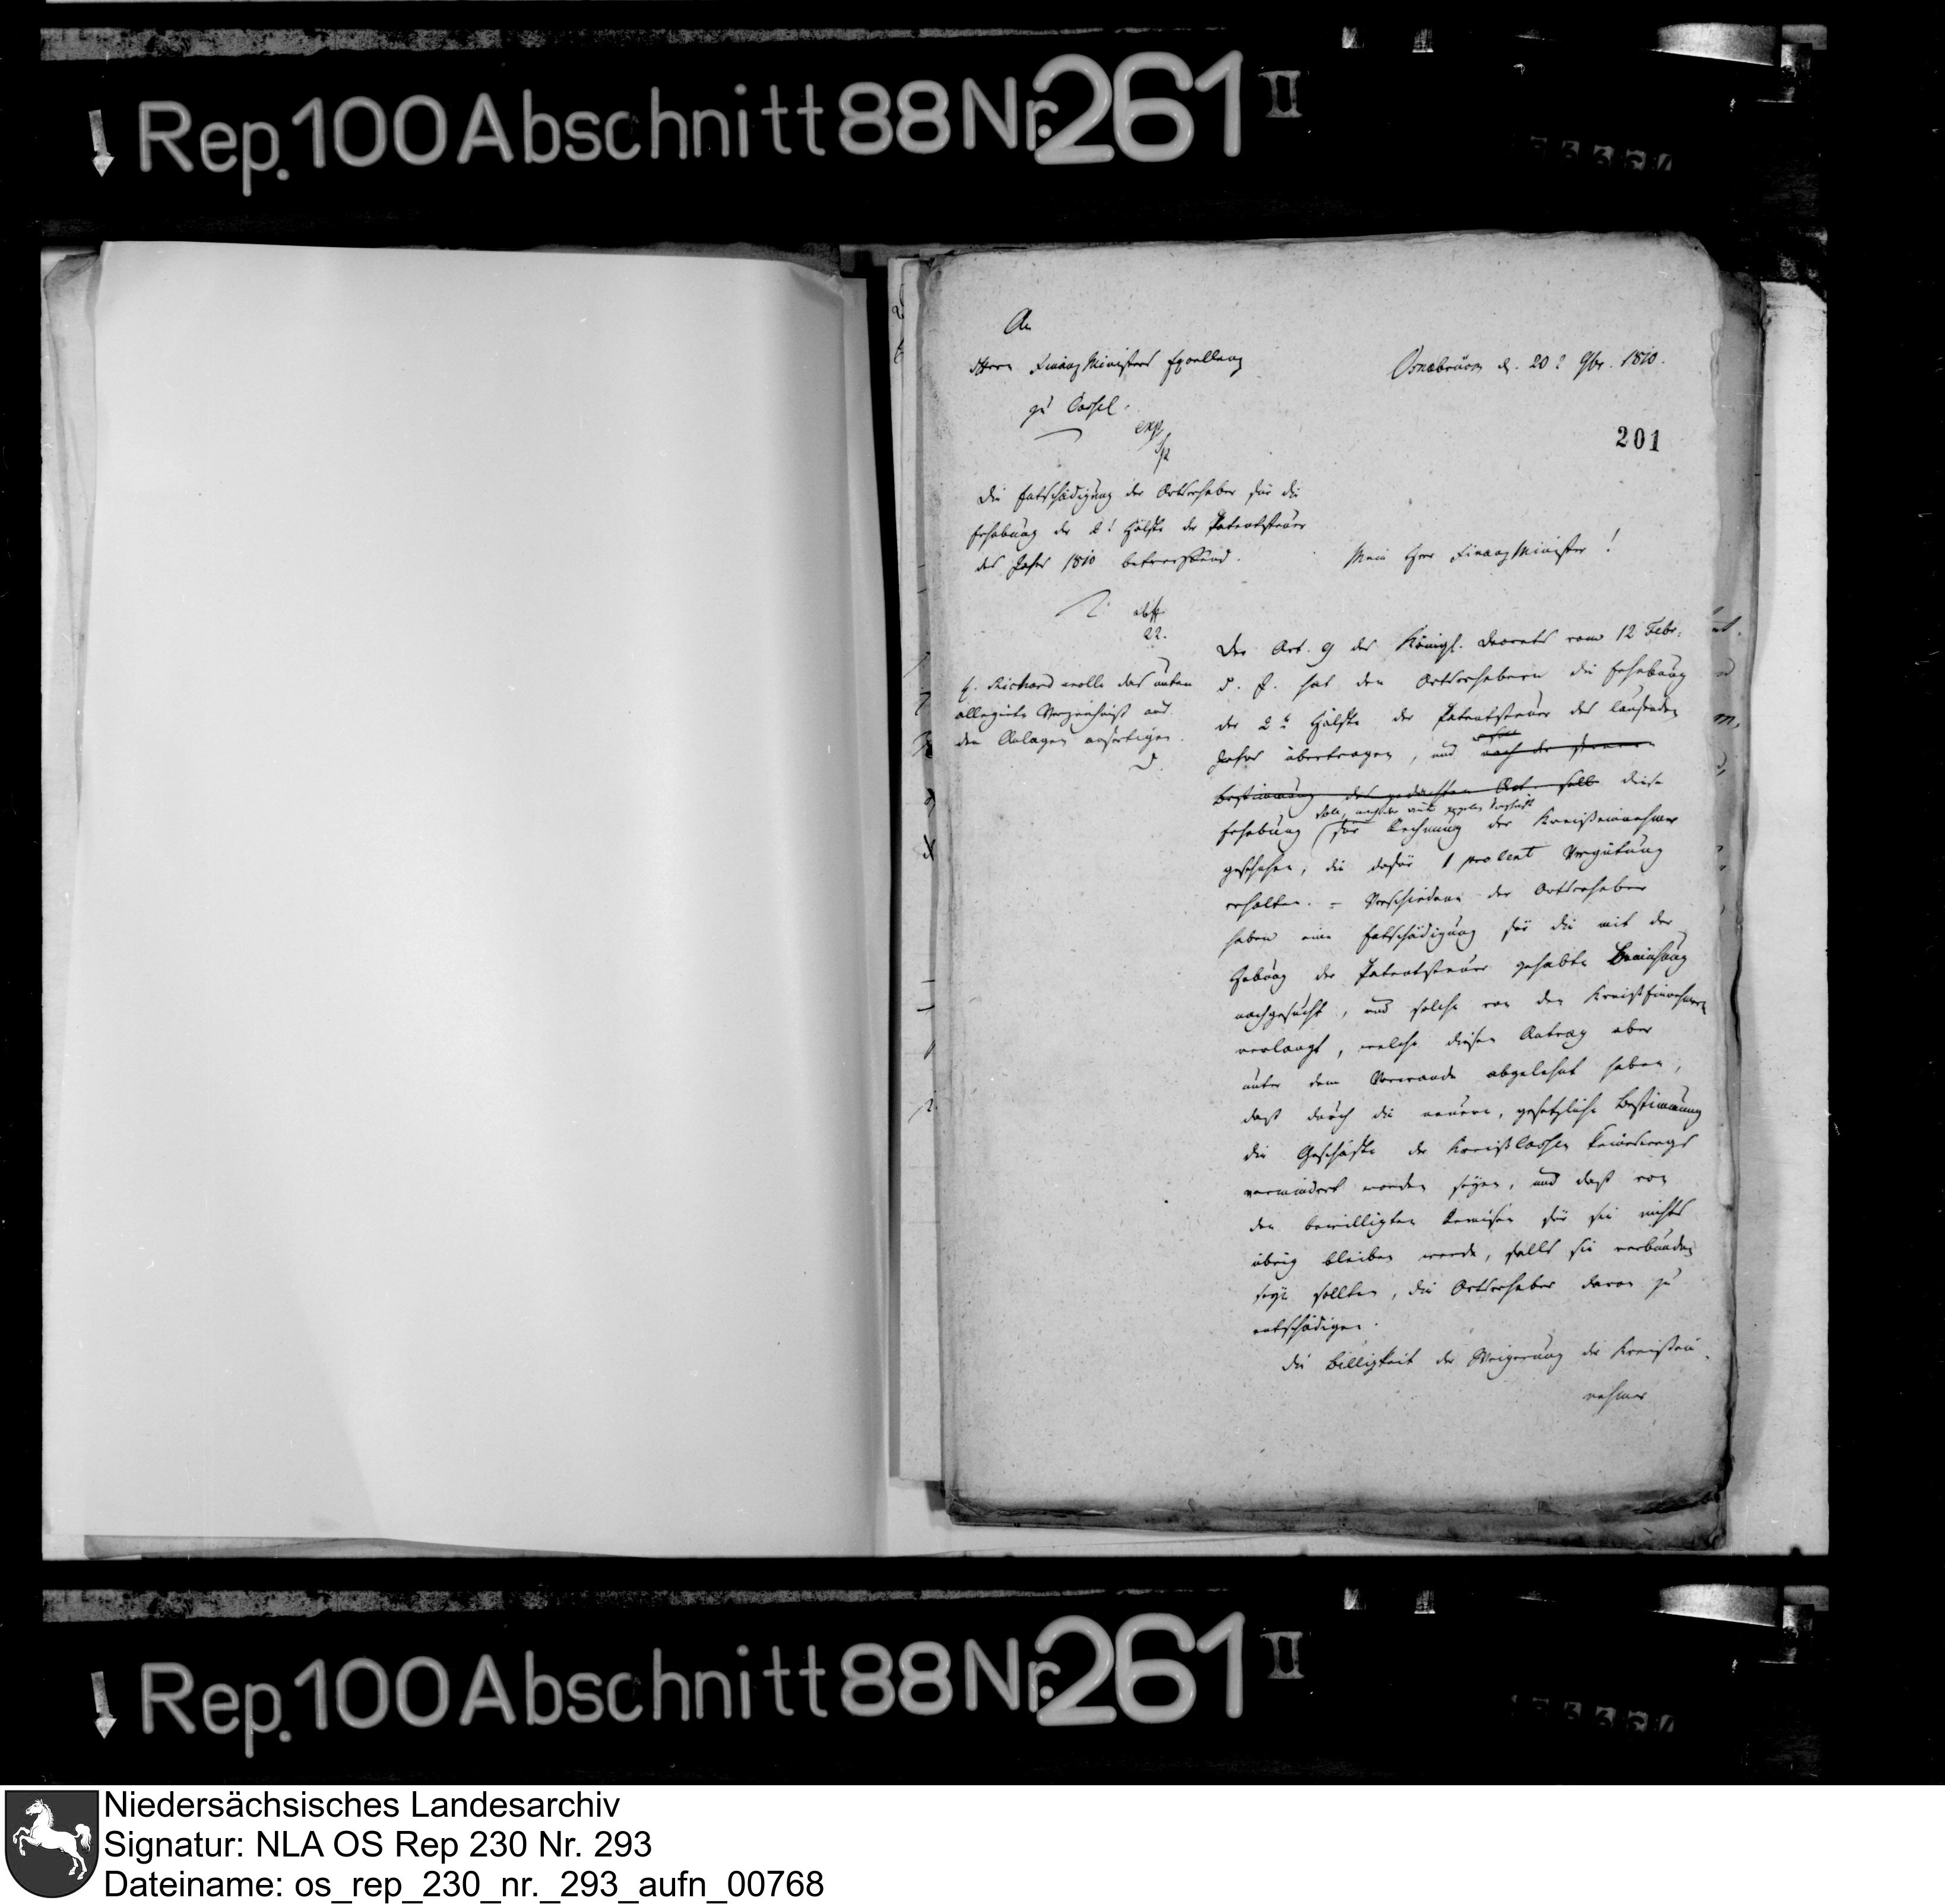 Rep. 100 Abschnitt 88 Nr. 261 II
An
Herrn Finanz Ministers Excellenz
zu Cassel.
Osnabrück d. 20 t 9br. 1810.
exp
201
Die Entschädigung der Ortserheber für die
Erhebung der 2t Hälfte der Patentsteuer
des Jahrs 1810 betreffend.
Mein Herr Finanz Minister!
abff
22.
H. Richard wolle das unten
allegirte Verzeichniß und
die Anlagen anfertigen.
Der Art. 9 des Königl. Decrets vom 12 Febr.
d. J. hat den Ortserhebern die Erhebung
der 2t Hälfte der Patentsteuer des laufenden
Jahres übertragen, und nach der
Bestimmung des gedachten Art. soll diese
Erhebung für Rechnung der Kreißeinnehmer
geschehen, die dafür 1 pro Cent Vergütung
erhalten. = Verschiedene der Ortserheber
haben eine Entschädigung für die mit der
Hebung der Patentsteuer gehabte Bemühung
nachgesucht, und solche von den Kreißeinnehmern
verlangt, welche diesen Antrag aber
unter dem Vorwande abgelehnt haben,
daß durch die neuere, gesetzliche Bestimmung
die Geschäfte der Kreißcassen keineswegs
vermindert worden seyen, und daß von
den bewilligten Remisen für sie nichts
übrig bleiben werde, falls sie verbunden
seyn sollten, die Ortserheber davon zu
entschädigen.
Die Billigkeit der Weigerung der Kreißein-
nehmer
Rep. 100 Abschnitt 88 Nr. 261 II
Niedersächsisches Landesarchiv
Signatur: NLA OS Rep 230 Nr. 293
Dateiname: os_rep_230_nr._293_aufn_00768